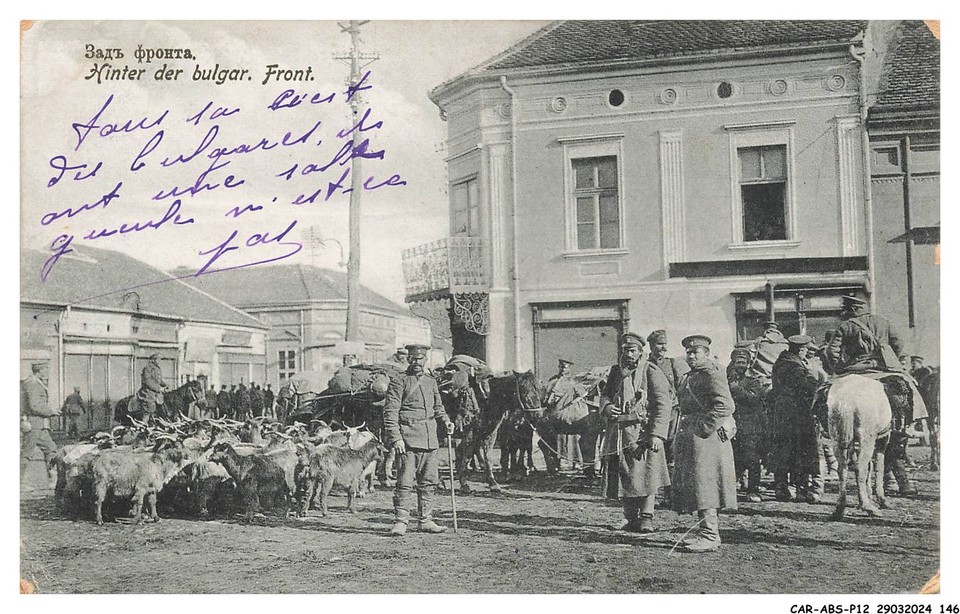 Задъ фронта.
Hinter der bulgar. Front.
tous sa c'est
des bulgares, ils
ont une sale
gueule n'est-ce
pas
CAR-ABS-P12 29032024 146